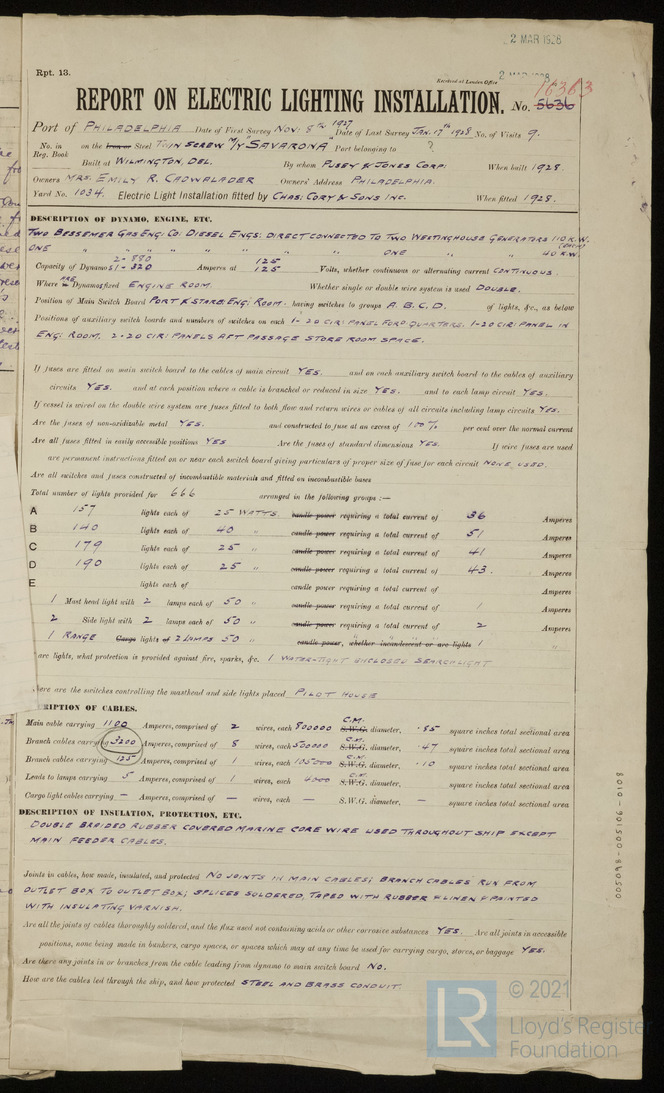 2 MAR 1928
Rpt. 13.
Received at London Office 2 MAR 1928
16363
REPORT ON ELECTRIC LIGHTING INSTALLATION. No. 5636
Port of PHILADELPHIA Date of First Survey NOV: 5TH 1927 Date of Last Survey JAN. 17TH 1928 No. of Visits 9.
No. in Reg. Book on the Iron or Steel TWIN SCREW M/Y "SAVARONA" Port belonging to ?
Built at WILMINGTON, DEL. By whom PUSEY & JONES CORP: When built 1928.
Owners MRS. EMILY R. CADWALADER Owners' Address PHILADELPHIA.
Yard No. 1034. Electric Light Installation fitted by CHAS: CORY & SONS INC. When fitted 1928.
DESCRIPTION OF DYNAMO, ENGINE, ETC.
TWO BESSEMER GAS ENG: CO: DIESEL ENGS: DIRECT CONNECTED TO TWO WESTINGHOUSE GENERATORS 110 K.W. (EACH)
ONE " " " " " " " " ONE " " 40 K.W.
Capacity of Dynamos 2-880 1-320 Amperes at 125 125 Volts, whether continuous or alternating current CONTINUOUS.
Where ARE Dynamos fixed ENGINE ROOM. Whether single or double wire system is used DOUBLE.
Position of Main Switch Board PORT & STARB: ENG: ROOM. having switches to groups A. B. C. D. of lights, &c., as below
Positions of auxiliary switch boards and numbers of switches on each 1-20 CIR: PANEL FORD QUARTERS, 1-20 CIR: PANEL IN
ENG: ROOM, 2-20 CIR: PANELS AFT PASSAGE STORE ROOM SPACE.
If fuses are fitted on main switch board to the cables of main circuit YES. and on each auxiliary switch board to the cables of auxiliary
circuits YES. and at each position where a cable is branched or reduced in size YES. and to each lamp circuit YES.
If vessel is wired on the double wire system are fuses fitted to both flow and return wires or cables of all circuits including lamp circuits YES.
Are the fuses of non-oxidizable metal YES. and constructed to fuse at an excess of 100% per cent over the normal current
Are all fuses fitted in easily accessible positions YES Are the fuses of standard dimensions YES. If wire fuses are used
are permanent instructions fitted on or near each switch board giving particulars of proper size of fuse for each circuit NONE USED.
Are all switches and fuses constructed of incombustible materials and fitted on incombustible bases
Total number of lights provided for 666 arranged in the following groups :—
A 157 lights each of 25 WATTS candle power requiring a total current of 36 Amperes
B 140 lights each of 40 " candle power requiring a total current of 51 Amperes
C 179 lights each of 25 " candle power requiring a total current of 41 Amperes
D 190 lights each of 25 " candle power requiring a total current of 43. Amperes
E lights each of candle power requiring a total current of Amperes
1 Mast head light with 2 lamps each of 50 " candle power requiring a total current of 1 Amperes
2 Side light with 2 lamps each of 50 " candle power requiring a total current of 2 Amperes
1 RANGE Cargo lights of 2 LAMPS 50 " candle power, whether incandescent or arc lights 1 "
arc lights, what protection is provided against fire, sparks, &c. 1 WATER-TIGHT ENCLOSED SEARCHLIGHT
ere are the switches controlling the masthead and side lights placed PILOT HOUSE
CRIPTION OF CABLES.
Main cable carrying 1100 Amperes, comprised of 2 wires, each 800000 C.M. S.W.G. diameter, .85 square inches total sectional area
Branch cables carrying 3200 Amperes, comprised of 8 wires, each 500000 C.M. S.W.G. diameter, .47 square inches total sectional area
Branch cables carrying 125 Amperes, comprised of 1 wires, each 105000 C.M. S.W.G. diameter, .10 square inches total sectional area
Leads to lamps carrying 5 Amperes, comprised of 1 wires, each 4000 C.M. S.W.G. diameter, square inches total sectional area
Cargo light cables carrying — Amperes, comprised of — wires, each — S.W.G. diameter, — square inches total sectional area
DESCRIPTION OF INSULATION, PROTECTION, ETC.
DOUBLE BRAIDED RUBBER COVERED MARINE CORE WIRE USED THROUGHOUT SHIP EXCEPT
MAIN FEEDER CABLES.
Joints in cables, how made, insulated, and protected NO JOINTS IN MAIN CABLES; BRANCH CABLES RUN FROM
OUTLET BOX TO OUTLET BOX; SPLICES SOLDERED, TAPED WITH RUBBER & LINEN & PAINTED
WITH INSULATING VARNISH.
Are all the joints of cables thoroughly soldered, and the flux used not containing acids or other corrosive substances YES. Are all joints in accessible
positions, none being made in bunkers, cargo spaces, or spaces which may at any time be used for carrying cargo, stores, or baggage YES.
Are there any joints in or branches from the cable leading from dynamo to main switch board NO.
How are the cables led through the ship, and how protected STEEL AND BRASS CONDUIT.
005098-005106-0108
LR
© 2021
Lloyd's Register
Foundation